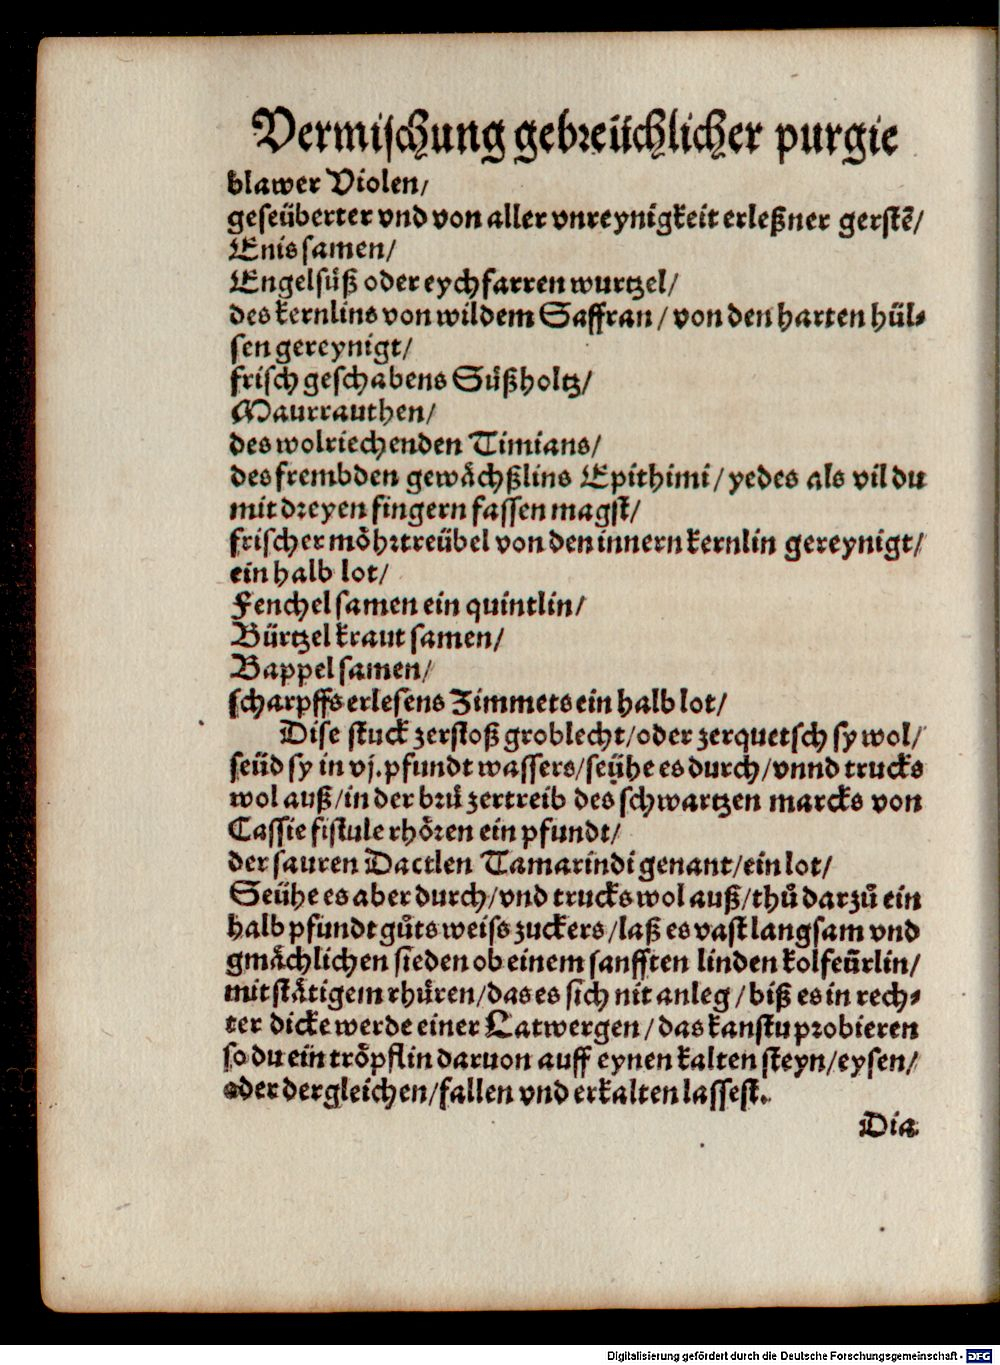 Vermischung gebreüchlicher purgie
blawer Violen/
geseüberter vnd von aller vnreynigkeit erleßner gerstẽ/
Enis samen/
Engelsuͤß oder eychfarren wurtzel/
des kernlins von wildem Saffran / von den harten hül⸗
sen gereynigt/
frisch geschabens Suͤßholtz/
Maurrauthen/
des wolriechenden Timians/
des frembden gewaͤchßlins Epithimi / yedes als vil du
mit dreyen fingern fassen magst/
frischer moͤhrtreübel von den innern kernlin gereynigt/
ein halb lot/
Fenchel samen ein quintlin/
Bürtzel kraut samen/
Bappel samen/
scharpffs erlesens Zimmets ein halb lot/
Dise stuck zerstoß groblecht/oder zerquetsch sy wol/
seüd sy in vj. pfundt wassers/seühe es durch/vnnd trucks
wol auß/in der bruͤ zertreib des schwartzen marcks von
Cassie fistule rhoͤren ein pfundt/
der sauren Dactlen Tamarindi genant/ein lot/
Seühe es aber durch/vnd trucks wol auß/thuͦ darzuͦ ein
halb pfundt guͦts weiss zuckers/laß es vast langsam vnd
gmaͤchlichen sieden ob einem sanfften linden kolfeürlin/
mit staͤtigem rhuͤren/das es sich nit anleg / biß es in rech⸗
ter dicke werde einer Latwergen / das kanstu probieren
so du ein troͤpflin daruon auff eynen kalten steyn/eysen/
oder dergleichen/fallen vnd erkalten lassest.
Dia
Digitalisierung gefördert durch die Deutsche Forschungsgemeinschaft - DFG